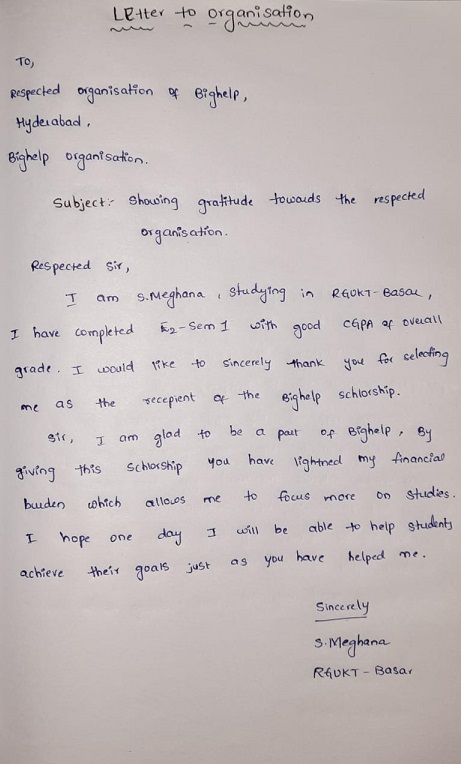 LEtter to organisation
To,
Respected organisation of Bighelp,
Hyderabad,
Bighelp organisation.
Subject:- Showing gratitude towards the respected
organisation.
Respected Sir,
I am S.Meghana, Studying in RGUKT-Basar,
I have completed E2-Sem 1 with good CGPA of overall
grade. I would like to sincerely thank you for selecting
me as the recepient of the Bighelp schlorship.
Sir, I am glad to be a part of Bighelp, By
giving this Schlorship you have lightned my financial
burden which allows me to focus more on studies.
I hope one day I will be able to help students
achieve their goals just as you have helped me.
Sincerely
S.Meghana
RGUKT - Basar